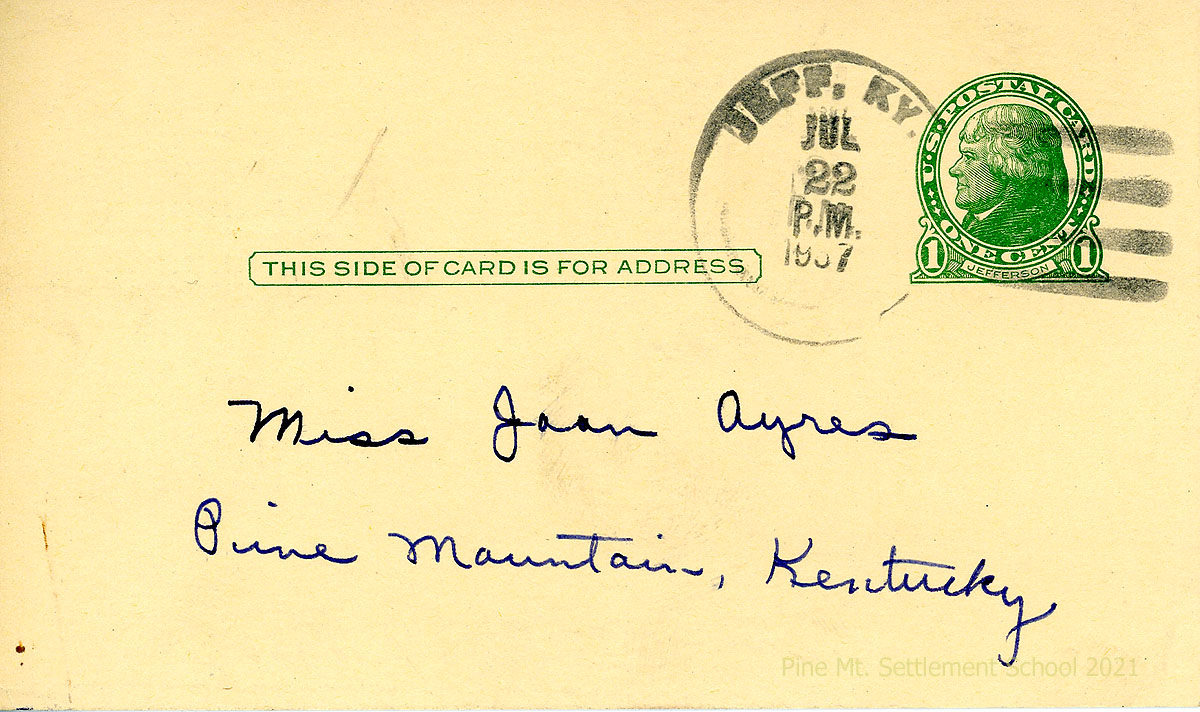 JEFF, KY.
JUL
22
P.M.
1937
U.S. POSTAL CARD
ONE CENT
1 JEFFERSON 1
THIS SIDE OF CARD IS FOR ADDRESS
Miss Joan Ayres
Pine Mountain, Kentucky
Pine Mt. Settlement School 2021